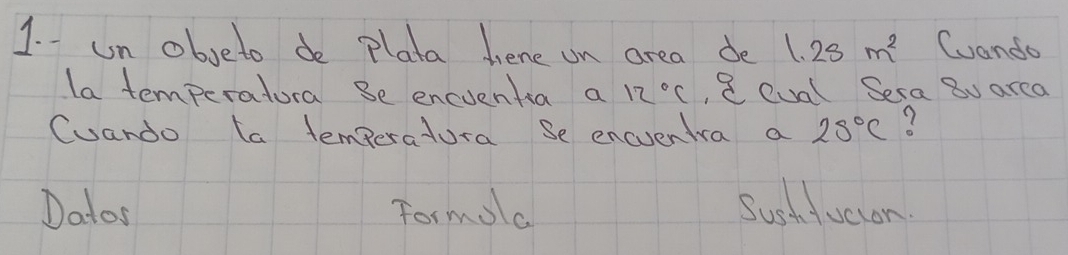 1.- un objeto de Plata tiene un area de 1.25 m² Cuando
la temperatura se encuentra a 12°C, ¿ Cual Sera Su area
Cuando la temperatura se encuentra a 28°C?
Datos Formula Sustitucion.